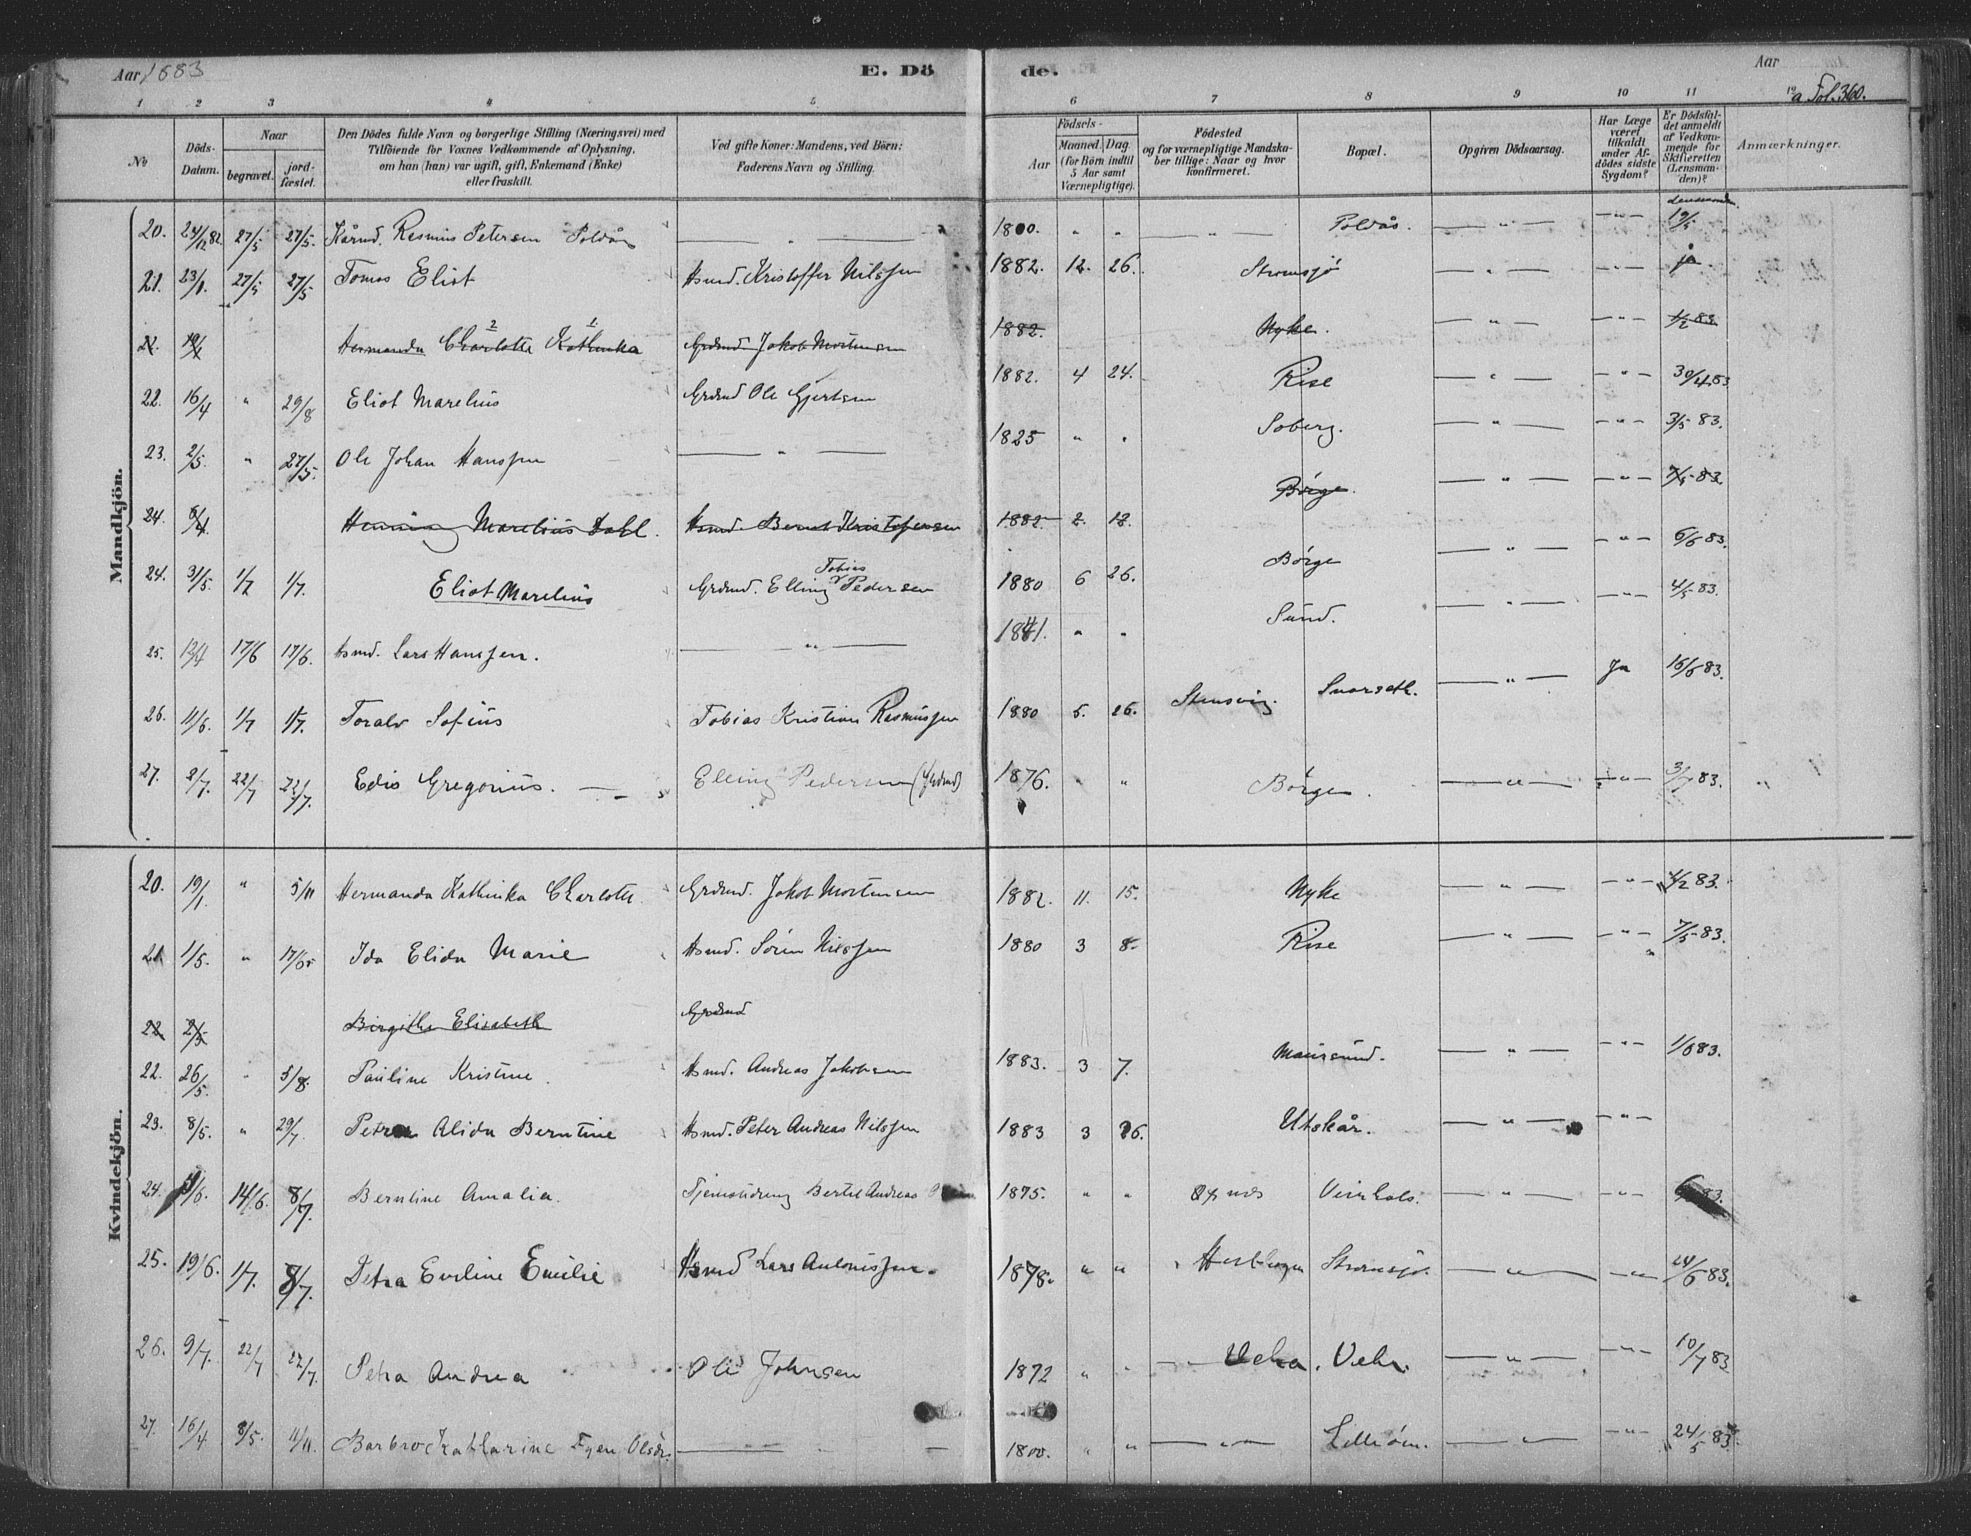 Aar 1883 E. Dö de. Aar
1 2 3 4 5 6 7 8 9 10 11 12 a Fol. 360.
No
Döds-Datum.
Naar
begravet.
jord-fæstet.
Den Dödes fulde Navn og borgerlige Stilling (Næringsvei) med
Tilföiende for Voxnes Vedkommende af Oplysning,
om han (hun) var ugift, gift, Enkemand (Enke)
eller fraskilt.
Ved gifte Koner: Mandens, ved Börn:
Faderens Navn og Stilling.
Födsels-
Aar
Maaned. Dag.
(for Börn indtil
5 Aar samt
Værnepligtige).
Födested
og for værnepligtige Mandska-
ber tillige: Naar og hvor
konfirmeret.
Bopæl.
Opgiven Dödsaarsag.
Har Læge
været
tilkaldt
under Af-
dödes sidste
Sygdom?
Er Dödsfal-
det anmeldt
af Vedkom-
mende for
Skifteretten
(Lensman-
den)?
Anmærkninger.
Mandkjön.
20. 24/12 82 27/5 27/5. Kårmd. Rasmus Petersen Poldås — " — 1800. " " — " — Poldås. — " — — " — 19/5
21. 23/1. 27/5 27/5 Tomas Eliot Hsmd. Kristoffer Nilssen 1882. 12. 26. Strømsjö — " — — " — ja
21. 19/1 Hermanda Charlotte 2 Kathinka 1 Grdmd Jakob Mortensen 1882. Nyke. — " — — " — 1/2 83
22. 16/4 " 29/8 Eliot Marelius Grdmd Ole Gjertsen 1882. 4 24. Rise — " — — " — 30/4 83
23. 2/5. " 27/5. Ole Johan Hanssen — " — 1825 " " Soberg. — " — — " — 3/5 83.
24. 6/4 Henning Marelius Dahl. Hsmd. Bernt Kristofersen 1882. 2. 18. Börge. — " — — " — 7/5 83.
24. 31/5. 1/7 1/7. Eliot Marelius Grdmd. Elling Tobias Pedersen 1880 6 26. Börge — " — — " — 6/6 83.
25. 12/4 17/6 17/6. Hsmd. Lars Hanssen. — " — 1841. " " Sund. — " — — " — 4/5 83.
26. 11/6. 1/7 1/7. Toralv Sofius Tobias Kristian Rasmussen 1880 5. 26. Stensvig Snarseth. — " — Ja 16/6 83.
27. 2/7. 22/7 22/7. Edis Gregorius. Elling Pedersen (Grdmd) 1876. " " Börgen. — " — — " — 3/7 83. "
Kvindekjön.
20. 19/1. " 5/11 Hermanda Kathinka Charlotte. Grdmd. Jakob Mortensen 1882. 11. 15. Nyke — " — — " — 1/2 83.
21. 1/5. " 17/6. Ida Elida Marie Hsmd. Sören Nilssen 1880 3 8. Rise — " — — " — 7/5 83.
22. 2/5 Birgithe Elisabeth Grdmd
22. 26/5. " 5/8. Pauline Kristine. Hsmd. Andreas Jakobsen 1883. 3 7. Maursund. — " — — " — 1/6 83.
23. 8/5. " 29/7. Petra Alida Berntine Hsmd. Peter Andreas Nilssen 1883 3 26. Utskår. — " — — " —
24. /6. 14/6. 8/7. Berntine Amalia. Tjenestdreng Bertel Andreas 1875. " " Öxnes Veirhols. — " — — " — 83.
25. 19/6. 1/7. 8/7. Petra Eveline Emilie Hsmd Lars Antonissen. 1878. " " Strømsjö. — " — — " — 24/6 83.
26. 9/7. 22/7 22/7. Petra Andrea Ole Johnsen 1872 " " Vehr. — " — — " — 10/7 83
27. 16/4 8/5. 11/11. Barbro Katharine Fyen Olsdr. — " — 1800. " " — " — Lilleöen. — " — — " — 24/5 83.